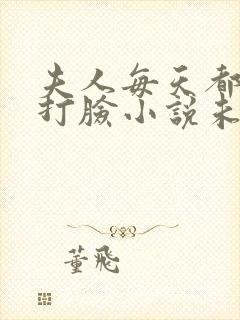 夫人每天都
打臉小說未
董飛